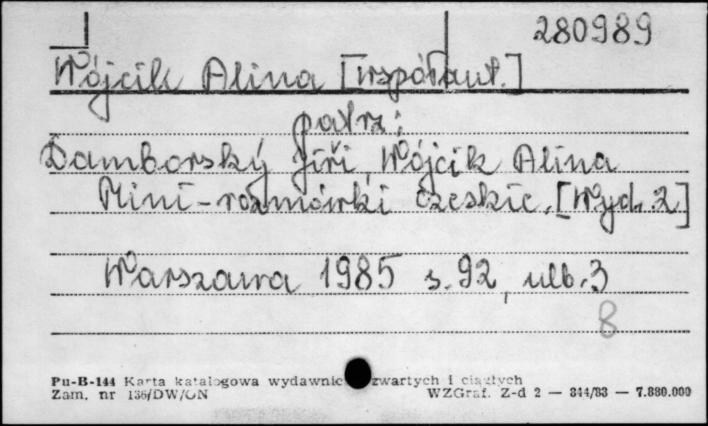 280989
Wójcik Alina [współaut.]
patrz:
Damborský Jiří, Wójcik Alina
Mini-rozmówki czeskie. [Wyd. 2]
Warszawa 1985 s. 92, nlb. 3
8
Pu-B-144 Karta katalogowa wydawnic zwartych i ciągłych
Zam. nr 136/DW/ON WZGraf. Z-d 2 — 344/83 — 7.880.000